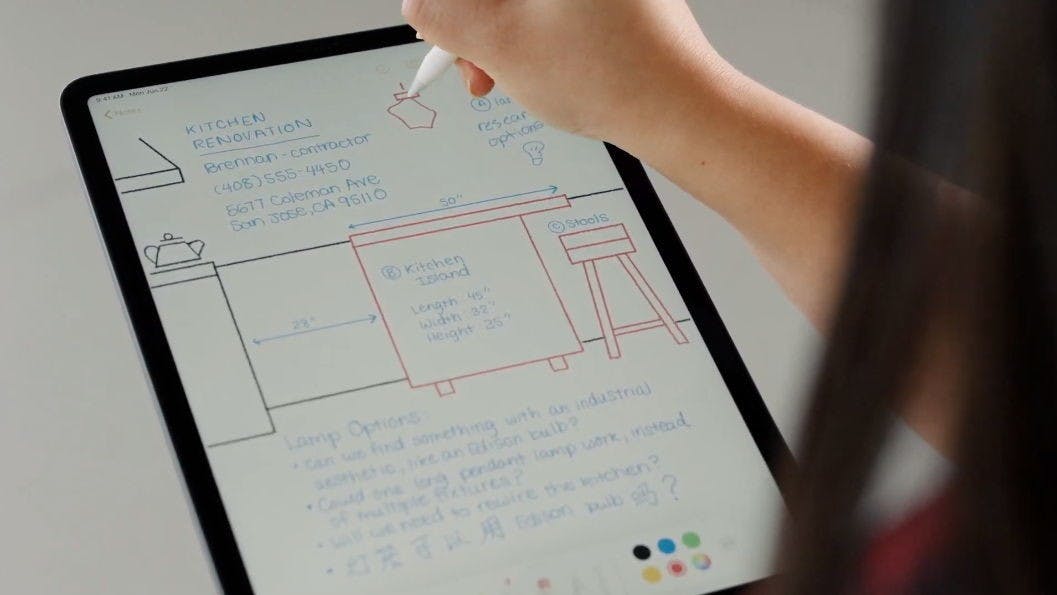 9:41 AM Mon Jun 22
Notes
KITCHEN
RENOVATION
Brennan - contractor
(408) 555-4450
5677 Coleman Ave
San Jose, CA 95110
A
resear
options
50"
C Stools
B Kitchen
Island
Length: 45"
Width: 32"
Height: 35"
28"
Lamp Options:
• Can we find something with an industrial
aesthetic, like an Edison bulb?
• Could one long pendant lamp work, instead
of multiple fixtures?
• Will we need to rewire the kitchen?
• 灯 可以用 Edison bulb 吗?